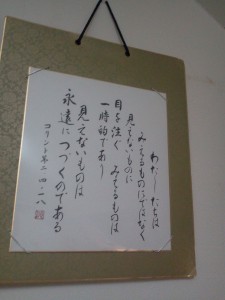 わたしたちは
みえるものにではなく
見えないものに
目を注ぐ みえるものは
一時的であり
見えないものは
永遠につづくのである
コリント第二 四・一八